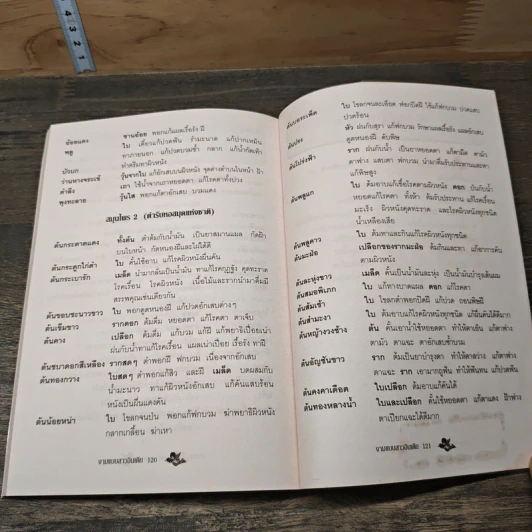 ชานอ้อย พอกแก้แผลเรื้อรัง ฝี
อ้อยแดง
ใบ เคี้ยวแก้ปวดฟัน รำมะนาด แก้ปากเหม็น
พลู
ทาภายนอก แก้ปวดบวมช้ำ กลาก แก้น้ำกัดเท้า
ทำครีมทาผิวหนัง
บัวบก
ว่านหางจระเข้
ตำลึง
พุงทะลาย
วุ้นใส พอกแก้ตาอักเสบ บวมแดง
สมุนไพร 2 (ตำรับหอสมุดแห่งชาติ)
ต้นกระดาดแดง ทั้งต้น ตำต้มกับน้ำมัน เป็นยาสมานแผล กัดฝ้า
บนใบหน้า กัดหนองฝีและไฝได้ดี
ต้นกระดูกไก่ดำ ใบ คั้นใช้อาบ แก้โรคผิวหนังผื่นคัน
ต้นกระเบารัก เมล็ด นำมากลั่นเป็นน้ำมัน ทาแก้โรคกุฏฐัง คุดทะราด
โรคเรื้อน โรคผิวหนัง เนื้อไม้และรากนำมาดื่มมี
สรรพคุณเช่นเดียวกัน
ต้นขอบชะนางขาว ใบ พอกดูดหนองฝี แก้ปวดอักเสบต่างๆ
ต้นเข็มขาว รากดอก ต้มดื่ม หยอดตา แก้โรคตา ตาเจ็บ
ต้นคาง เปลือก ต้มดื่ม แก้บวม แก้ฝี แก้พยาธิเปื่อยเน่า
ฝนกับน้ำทาแก้โรคเรื้อน แผลเน่าเปื่อย เรื้อรัง ทาฝี
ต้นชบาดอกสีเหลือง รากสดๆ ตำพอกฝี ฟกบวม เนื่องจากอักเสบ
ต้นทองกวาง ใบสดๆ ตำพอกแก้สิว และฝี เมล็ด บดผสมกับ
น้ำมะนาว ทาแก้ผิวหนังอักเสบ แก้คันแสบร้อน
หนังเป็นผื่นแดงคัน
ต้นน้อยหน่า ใบ โขลกจนป่น พอกแก้ฟกบวม ฆ่าพยาธิผิวหนัง
กลากเกลื้อน ฆ่าเหา
งามแบบสาวอินเดีย 120
ต้นบอระเพ็ด ใบ โขลกจนละเอียด พอกปิดฝี ใช้แก้ฟกบวม ปวดแสบ
ปวดร้อน
หัว ฝนกับสุรา แก้ฟกบวม รักษาแผลเรื้อรัง แผลอักเสบ
ดูดหนองฝี ดับพิษ
ราก ฝนกับน้ำ เป็นยาหยอดตา แก้ตามืด ตามัว
ตาฟาง แสบตา
แก้พิษสูง
ต้นพูแก ใบ ต้มอาบแก้เชื้อโรคตามผิวหนัง ดอก ปนกับน้ำ
หยอดตาแก้โรคตา
มะเร็ง ผิวหนังคุดทะราด และโรคผิวหนังทุกชนิด
น้ำเหลืองเสีย
ใบ ต้มทาและกินแก้โรคผิวหนังทุกชนิด
ต้นมะฝ่อ เปลือกของรากมะฝ่อ ต้มกินและทา แก้อาการคัน
ตามผิวหนัง
ต้นละหุ่งขาว เมล็ด คั้นเป็นน้ำมันละหุ่ง เป็นน้ำมันบำรุงเส้นผม
ต้นสมอพิเภก ใบ แก้ทางบาดแผล ดอก แก้โรคตา
ต้นส้มเช้า ใบ โขลกตำพอกปิดฝี แก้ปวด ถอนพิษฝี
ต้นสำมะงา ใบ ต้มอาบแก้โรคผิวหนังทุกชนิด แก้ผื่นคันได้ดีมาก
ต้นหญ้างวงช้าง ต้น คั้นเอาน้ำหยอดตา ทำให้ตาเย็น แก้ตาฟาง
ตามัว ตาแฉะ แก้ตาอักเสบช้ำบวม
ต้นอัญชันขาว ราก ต้มเป็นยาบำรุงตา ทำให้ตาสว่าง แก้ตาฟาง
ตาแฉะ ราก เอามาถูฟัน ทำให้ฟันทน แก้ปวดฟัน
ต้นคงคาเดือด ใบเปลือก ต้มอาบแก้คันได้
ต้นทองหลางน้ำ ใบและเปลือก คั้นใช้หยอดตา แก้ตาแดง ฝ้าฟาง
ตาเปียกแฉะได้ดีมาก
งามแบบสาวอินเดีย 121